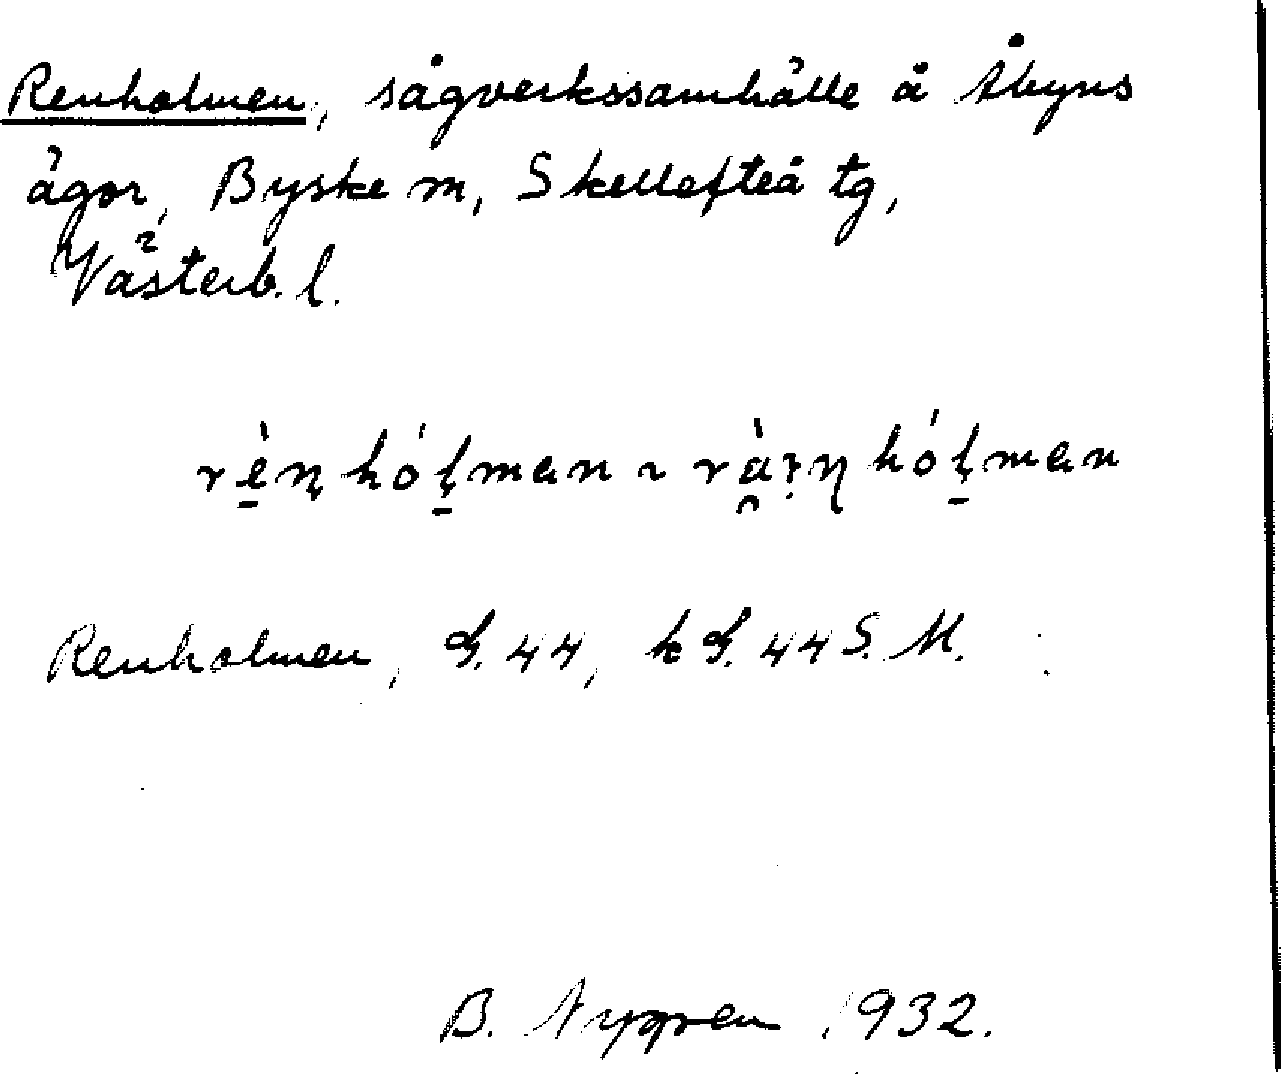 Renholmen, sågverkssamhälle å Åbyns
ägor, Byske sn, Skellefteå tg,
Västerb. l.
hólman ~ hólman
Renholmen, G. 44, k G. 44 S. M.
B. Nygren 1932.